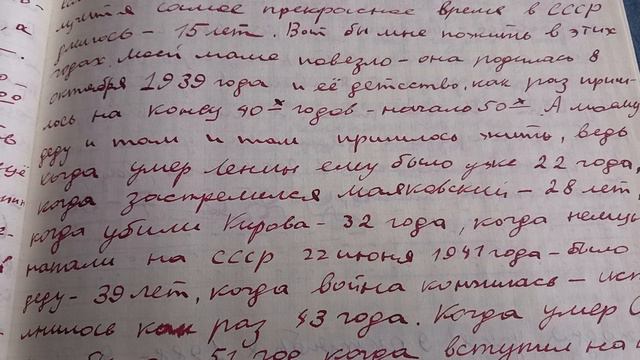 лучится самое прекрасное время в СССР
длилось - 15 лет. Вот бы мне пожить в этих
годах. Моей маме повезло - она родилась 8
октября 1939 года и её детство, как раз приш-
лось на конец 40х годов - начало 50х. А моему
деду и там и там пришлось жить, ведь
когда умер Ленин ему было уже 22 года,
когда застрелился Маяковский - 28 лет
когда убили Кирова - 32 года, когда немцы
напали на СССР 22 июня 1941 года - было
деду - 39 лет, когда война кончилась - исп
лнилось как раз 43 года. Когда умер С
51 год когда вступил на